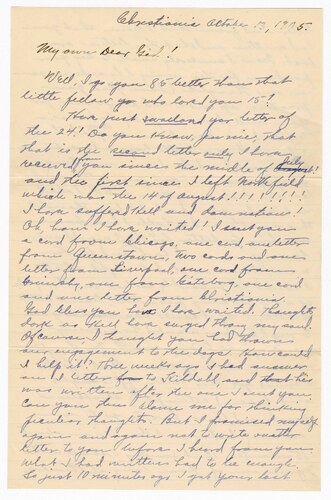 Christiania Octobe 13, 1905.
My own Dear Girl!
Well, I go you 85 better than that
little fellow who loved you 15!
Have just received your letter of
the 24! Do you know, Jennie, that
that is the second letter only I have
received from you since the middle of July
and the first since I left Northfield
which was the 14 of August!!!!!!!
I have suffered Hell and damnation!
Oh, how I have waited! I sent you
a card from Chicago, one card one letter
from Queenstown, two cards and one
letter from Liverpool, one card from
Grimsby, one from Goteborg, one card
and one letter from Christiania.
God bless you how I have waited. Thoughts
dark as Hell have surged than my soul.
Of course I thought you had thrown
our engagement to the dogs. How could
I help it? Two weeks ago I had answer
on a letter to Kildahl, and his
was written after the one I sent you.
Can you then blame me for thinking
peculiar thoughts. But I promised myself
again and again not to write another
letter to you before I heard from you
what I had written had to be enough.
So just 10 minutes ago I got your last